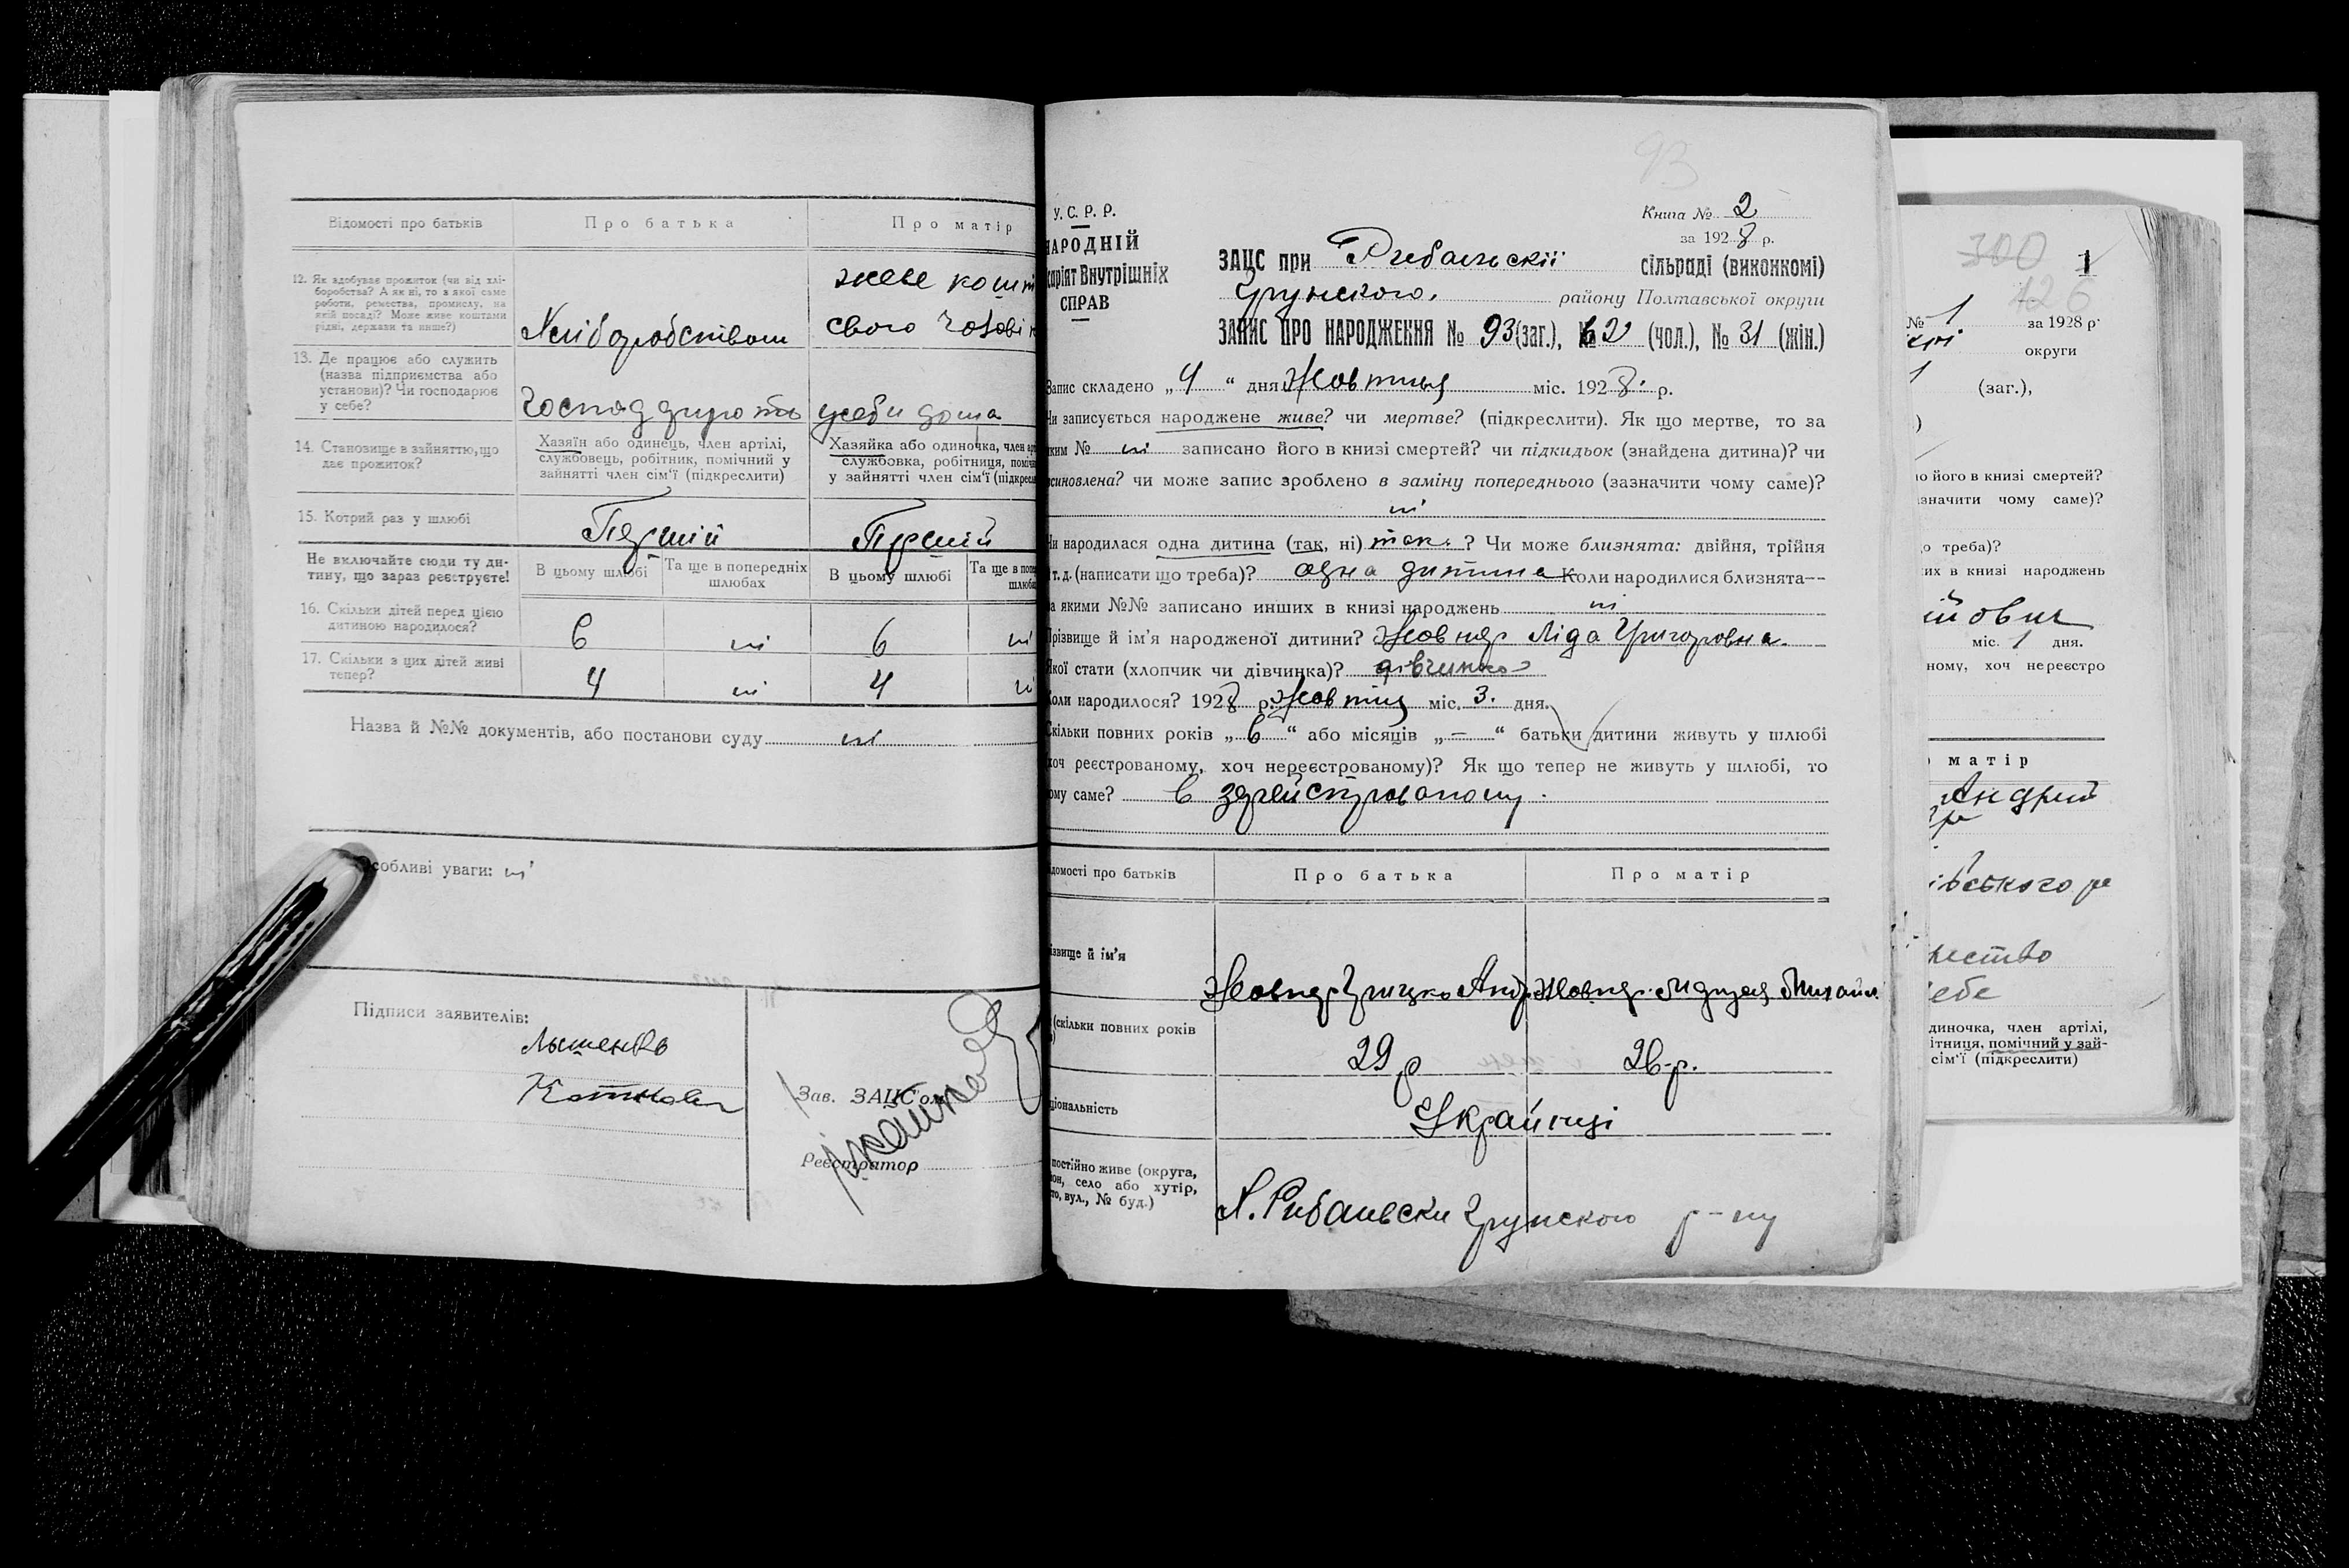 Відомості про батьків
Про батька
Про матір
12. Як здобуває прожиток (чи від хлі-
боробства? А як ні, то з якої саме
роботи, ремества, промислу, на
якій посаді? Може живе коштами
рідні, держави та инше?)
Хліборобством
живе кошт
свого чоловік
13. Де працює або служить
(назва підприємства або
установи)? Чи господарює
у себе?
Господдирють
усеби дома
14. Становище в зайняттю, що
дає прожиток?
Хазяїн або одинець, член артілі,
службовець, робітник, помічний у
зайнятті член сім'ї (підкреслити)
Хазяйка або одиночка, член ар
службовка, робітниця, поміч
у зайнятті член сім'ї (підкресл
15. Котрий раз у шлюбі
Перший
Перший
Не включайте сюди ту ди-
тину, що зараз реєструєте!
В цьому шлюбі
Та ще в попередніх
шлюбах
В цьому шлюбі
Та ще в попе
шлюба
16. Скільки дітей перед цією
дитиною народилося?
6 ні 6 ні
17. Скільки з цих дітей живі
тепер?
4 ні 4 ні
Назва й №№ документів, або постанови суду ні
собливі уваги: ні
Підписи заявителів:
Зав. ЗАЦС'ом
Реєстратор
93
У. С. Р. Р.
НАРОДНІЙ
саріят Внутрішніх
СПРАВ
Книга № 2
за 1928 р.
ЗАЦС при Рибальскій сільраді (виконкомі)
Грунского, району Полтавської округи
ЗАПИС ПРО НАРОДЖЕННЯ № 93 (заг.), № 62 (чол.), № 31 (жін.)
Запис складено „4“ дня Жовтня міс. 1928. р.
Чи записується народжене живе? чи мертве? (підкреслити). Як що мертве, то за
яким № ні записано його в книзі смертей? чи підкидьок (знайдена дитина)? чи
усиновлена? чи може запис зроблено в заміну попереднього (зазначити чому саме)?
ні
Чи народилася одна дитина (так, ні) так. ? Чи може близнята: двійня, трійня
і т. д. (написати що треба)? одна дитина Коли народилися близнята—
за якими №№ записано инших в книзі народжень ні
Прізвище й ім'я народженої дитини? Жовнер Ліда Григоровна.
Якої стати (хлопчик чи дівчинка)? дівчинка
Коли народилося? 1928 р. Жовтня міс. 3. дня.
Скільки повних років „6“ або місяців „—“ батьки дитини живуть у шлюбі
хоч реєстрованому, хоч нереєстрованому)? Як що тепер не живуть у шлюбі, то
чому саме? в
домості про батьків
Про батька
Про матір
ізвище й ім'я
Жовнер Грицько Андр
Жовнер
(скільки повних років
29 р
26-р.
ціональність
Украйнці
постійно живе (округа,
йон, село або хутір,
то, вул., № буд.)
Грунского р-ну
300
426
1
№ 1 за 1928 р.
округи
(заг.),
но його в книзі смертей?
зазначити чому саме)?
о треба)?
их в книзі народжень
йович
міс. 1 дня.
ному, хоч нереєстро
матір
Андрий
івського р
ебе
диночка, член артілі,
ітниця, помічний у зай-
сім'ї (підкреслити)